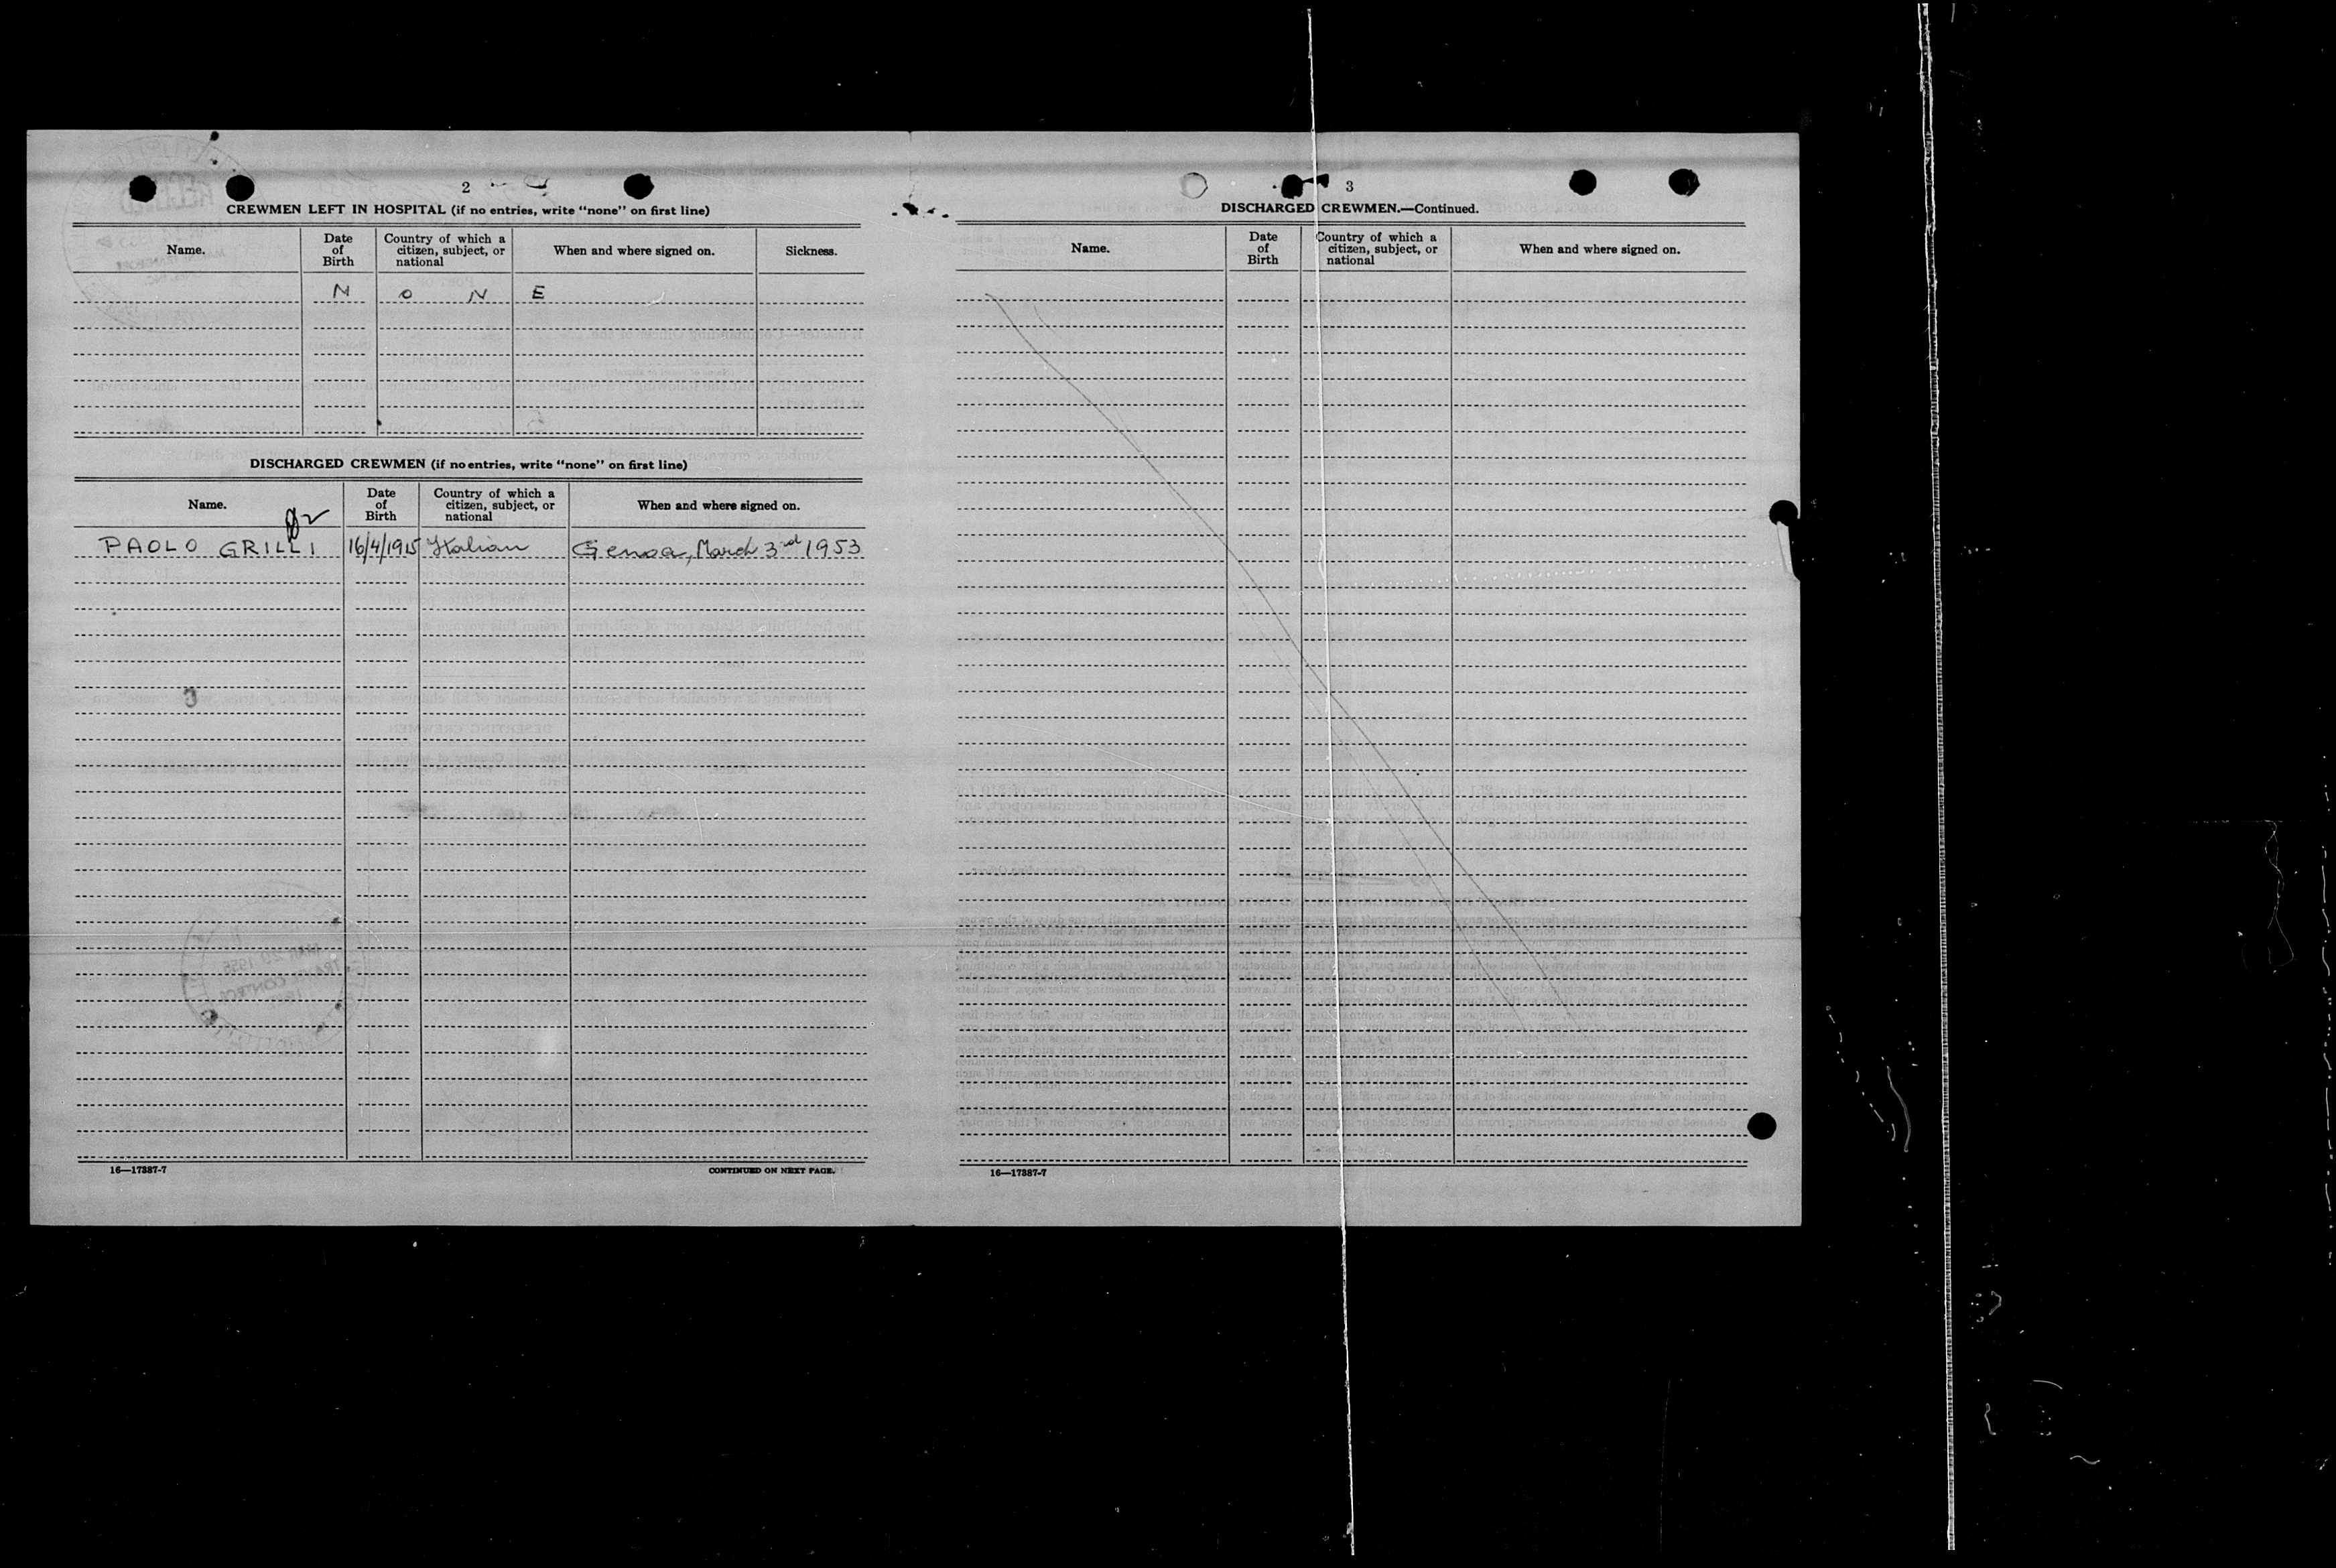 2
CREWMEN LEFT IN HOSPITAL (if no entries, write "none" on first line)
Name. Date of Birth Country of which a citizen, subject, or national When and where signed on. Sickness.
N O N E
DISCHARGED CREWMEN (if no entries, write "none" on first line)
Name. Date of Birth Country of which a citizen, subject, or national When and where signed on.
PAOLO GRILLI 16/4/1915 Italian Genoa, March 3rd 1953
16—17387-7 CONTINUED ON NEXT PAGE.
3
DISCHARGED CREWMEN.—Continued.
Name. Date of Birth Country of which a citizen, subject, or national When and where signed on.
16—17387-7